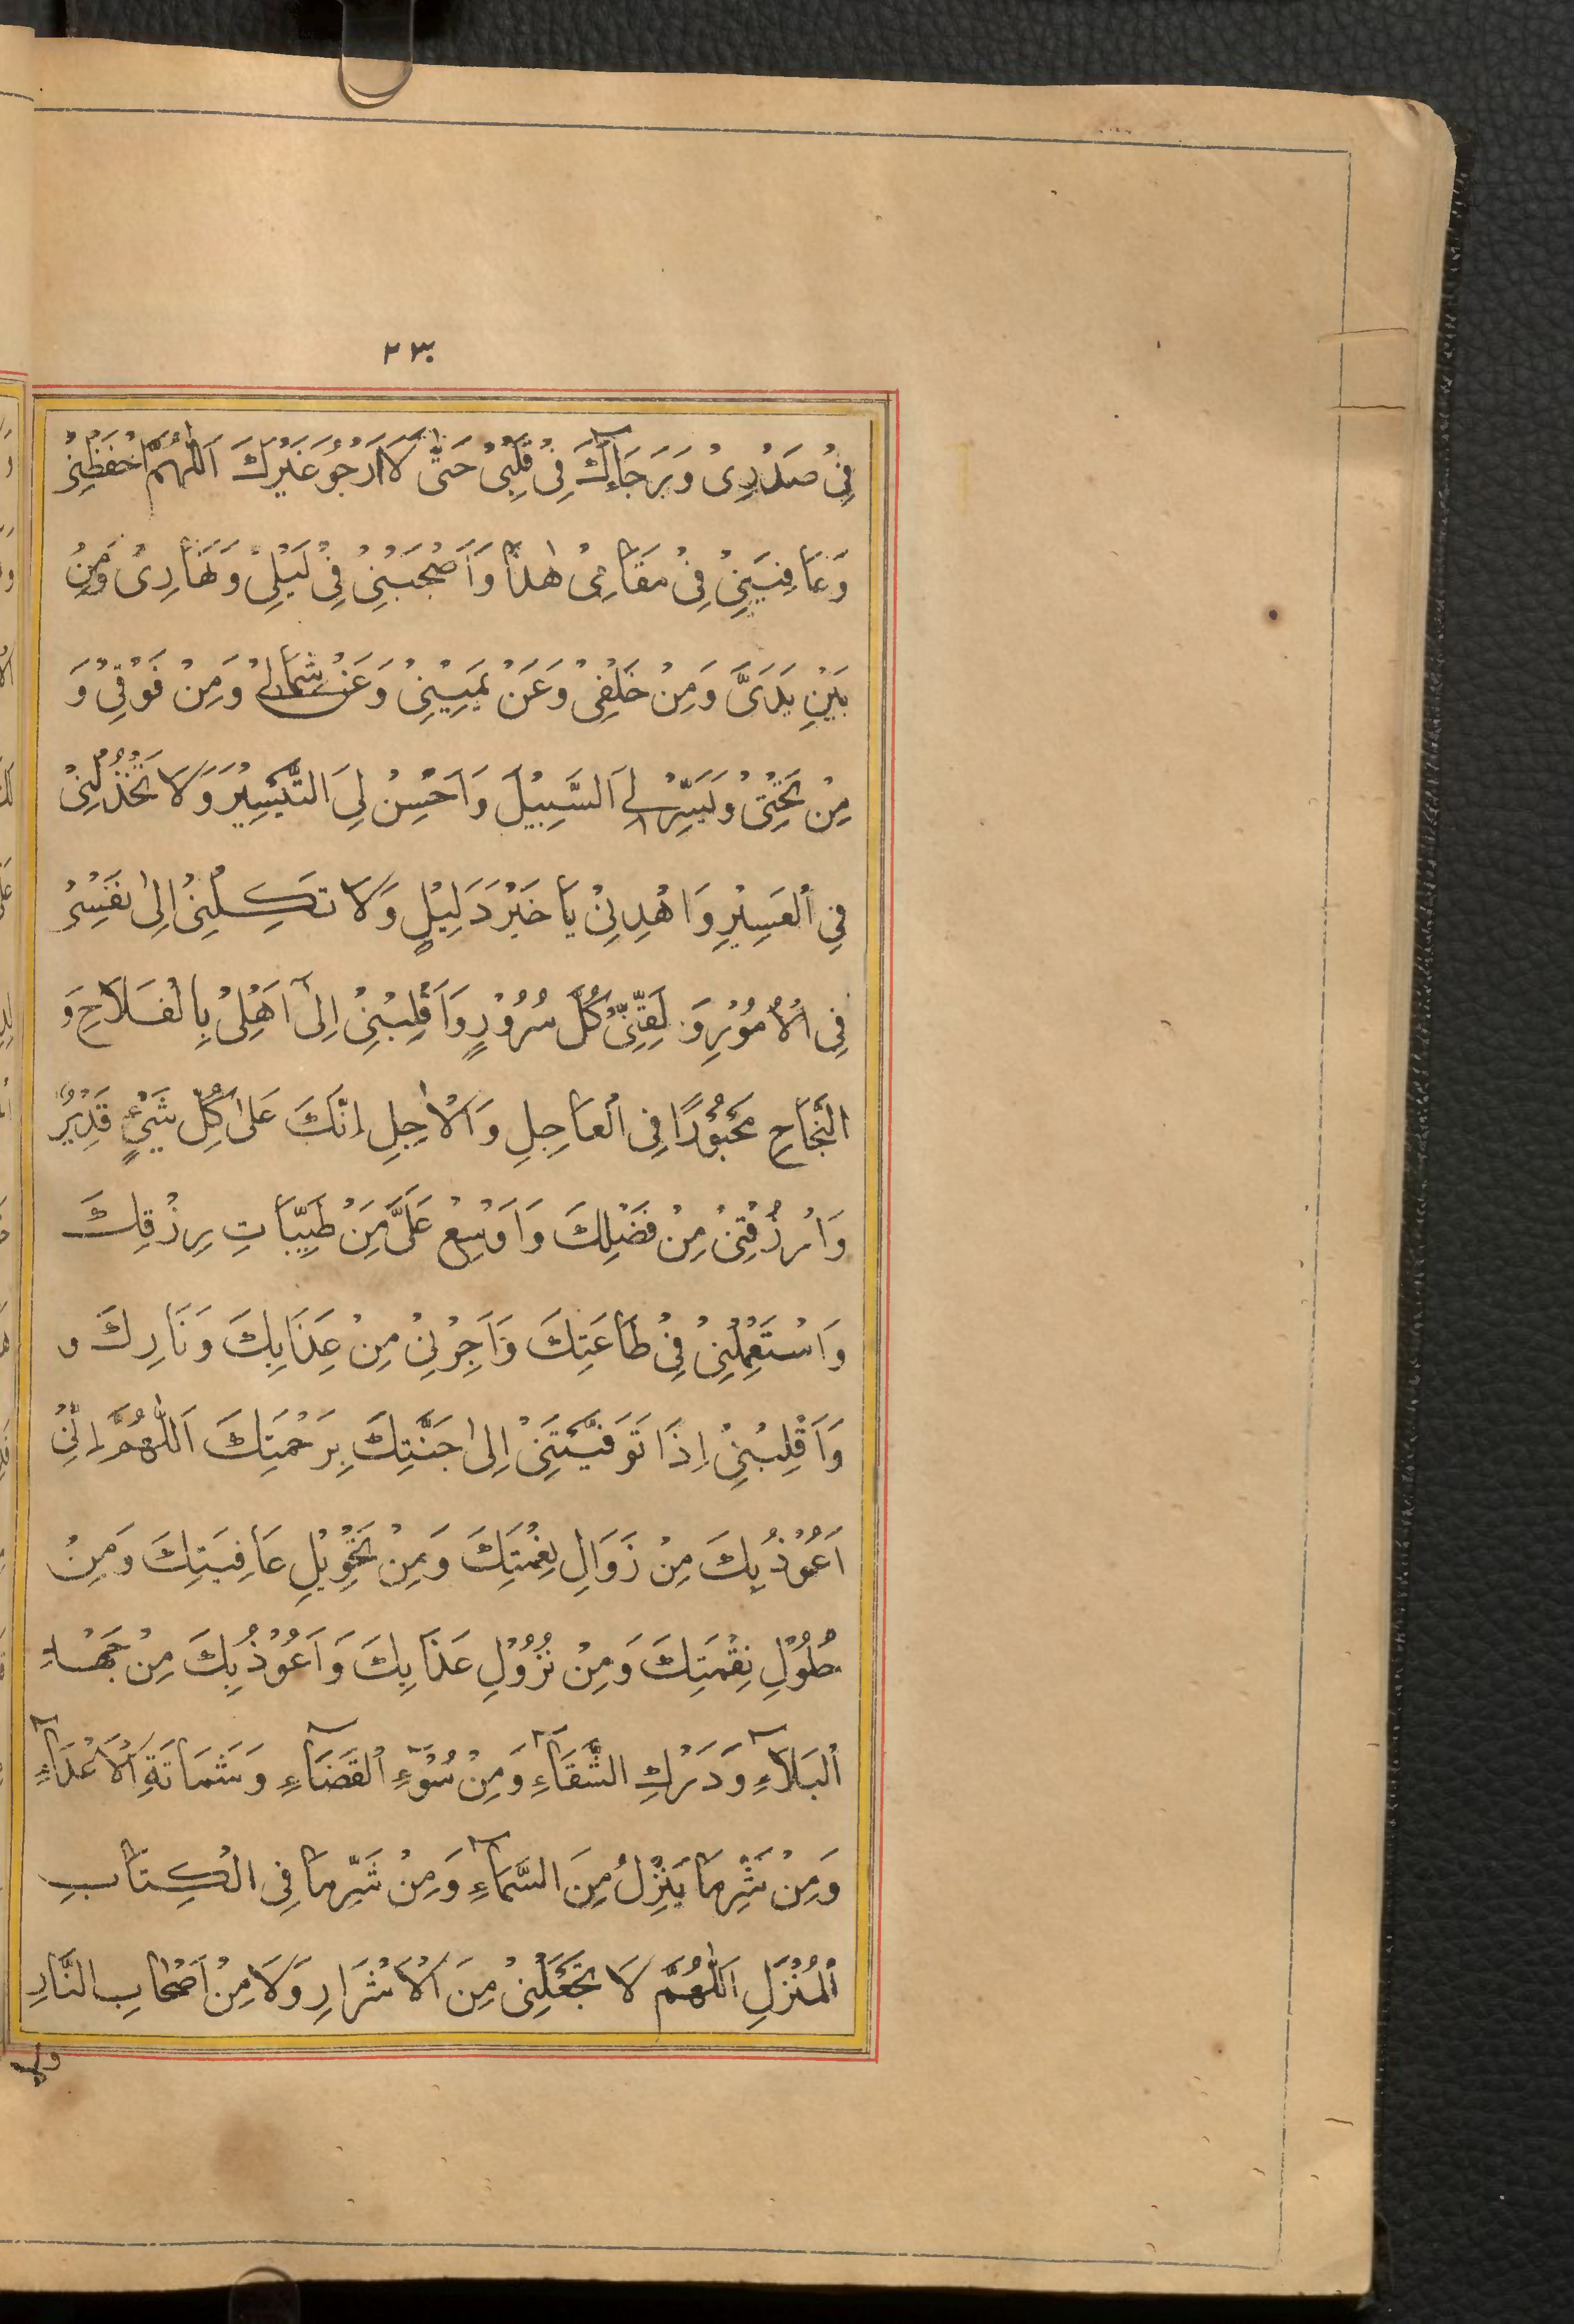 ٢٣٠
فِيْ صَدْرِيْ وَبَرَجَآءِكَ فِيْ قَلْبِيْ حَتّٰى لَا اَرْجُوَ غَيْرَكَ اَللّٰهُمَّ احْفَظْنِيْ
وَعَافِنِيْ فِيْ مَقَامِيْ هٰذَا وَاَصْحِبْنِيْ فِيْ لَيْلِيْ وَنَهَارِيْ وَمِنْ
بَيْنِ يَدَيَّ وَمِنْ خَلْفِيْ وَعَنْ يَمِيْنِيْ وَعَنْ شِمَالِيْ وَمِنْ فَوْقِيْ وَ
مِنْ تَحْتِيْ وَيَسِّرْ لِيَ السَّبِيْلَ وَاَحْسِنْ لِيَ التَّيْسِيْرَ وَلَا تَخْذُلْنِيْ
فِي الْعَسِيْرِ وَاهْدِنِيْ يَا خَيْرَ دَلِيْلٍ وَلَا تَكِلْنِيْ اِلٰى نَفْسِيْ
فِي الْاُمُوْرِ وَ لَقِّنِيْ كُلَّ سُرُوْرٍ وَاَقْلِبْنِيْ اِلٰى اَهْلِيْ بِالْفَلَاحِ وَ
النَّجَاحِ مَحْبُوْرًا فِي الْعَاجِلِ وَالْاٰجِلِ اِنَّكَ عَلٰى كُلِّ شَيْءٍ قَدِيْرٌ
وَارْزُقْنِيْ مِنْ فَضْلِكَ وَاَوْسِعْ عَلَيَّ مِنْ طَيِّبَاتِ رِزْقِكَ
وَاسْتَعْمِلْنِيْ فِيْ طَاعَتِكَ وَاَجِرْنِيْ مِنْ عَذَابِكَ وَنَارِكَ و
وَاَقْلِبْنِيْ اِذَا تَوَفَّيْتَنِيْ اِلٰى جَنَّتِكَ بِرَحْمَتِكَ اَللّٰهُمَّ اِنِّيْ
اَعُوْذُ بِكَ مِنْ زَوَالِ نِعْمَتِكَ وَمِنْ تَحْوِيْلِ عَافِيَتِكَ وَمِنْ
حُلُوْلِ نِقْمَتِكَ وَمِنْ نُزُوْلِ عَذَابِكَ وَاَعُوْذُ بِكَ مِنْ جَهْدِ
الْبَلَآءِ وَدَرْكِ الشَّقَآءِ وَمِنْ سُوْٓءِ الْقَضَآءِ وَشَمَاتَةِ الْاَعْدَآءِ
وَمِنْ شَرِّ مَا يَنْزِلُ مِنَ السَّمَآءِ وَمِنْ شَرِّ مَا فِي الْكِتَابِ
الْمُنْزَلِ اَللّٰهُمَّ لَا تَجْعَلْنِيْ مِنَ الْاَشْرَارِ وَلَا مِنْ اَصْحَابِ النَّارِ
ولا